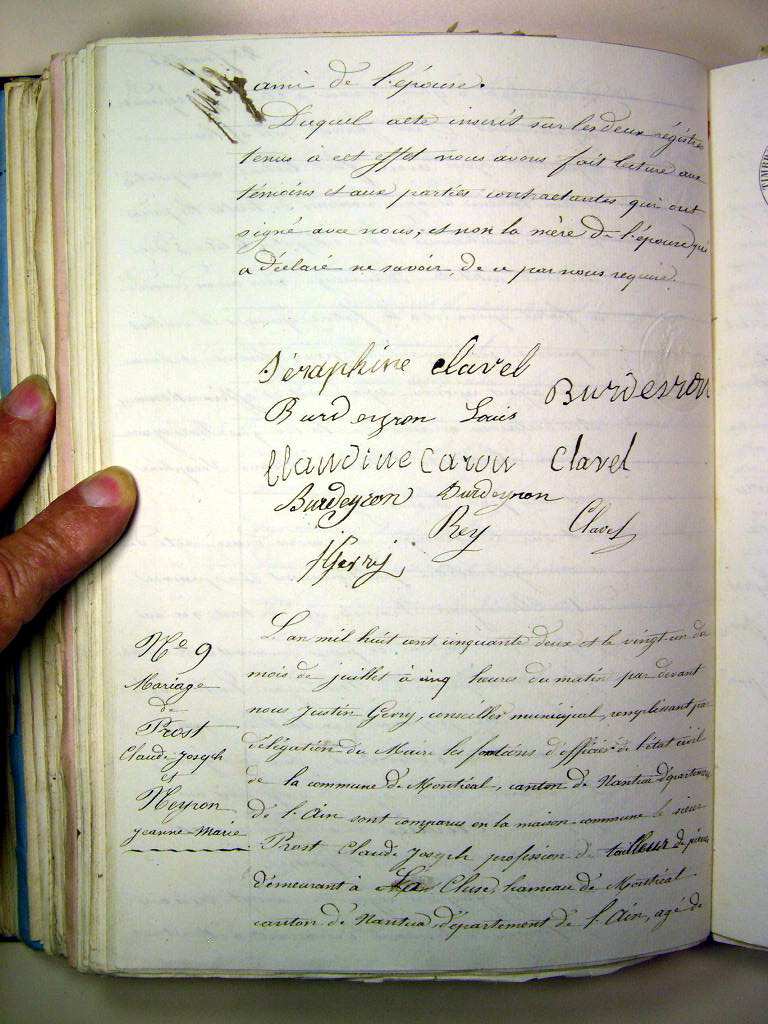 ami de l'épouse.
Duquel acte inscrit sur les deux régistres
tenus à cet effet nous avons fait lecture aux
témoins et aux parties contractantes qui ont
signé avec nous, et non la mère de l'épouse qui
a déclaré ne savoir, de ce par nous requise.
Séraphine Clavel
Burdeyron
Burdeyron Louis
Claudine Carou Clavel
Burdeyron Burdeyron
Rey Clavel
JGerry
No 9
Mariage
de
Prost
Claude Joseph
et
Neyron
Jeanne Marie
L'an mil huit cent cinquante deux et le vingt-un du
mois de juillet à cinq heures du matin par devant
nous Justin Gerry, conseiller municipal, remplissant par
délégation du Maire les fonctions d'officier de l'état civil
de la commune de Montréal, canton de Nantua département
de l'Ain sont comparus en la maison commune le sieur
Prost Claude Joseph profession de tailleur de pierre
demeurant à La Cluse, hameau de Montréal
canton de Nantua, département de l'Ain, agé de
TIMBR